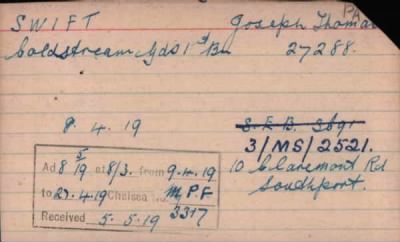 SWIFT Joseph Thomas
Coldstream Gds 1st Bn 27288.
8. 4. 19
S.F.B. 3691
3/MS/2521.
10 Claremont Rd
Southport.
Ad 8/5/19 at 8/3. from 9.4.19
to 27.4.19 Chelsea No. M.P.F
3317
Received 5.5.19